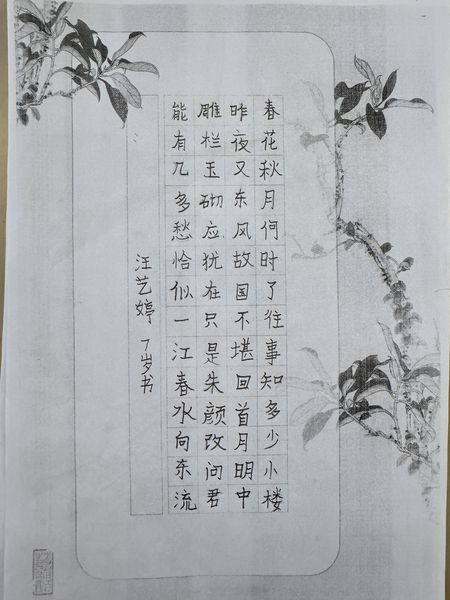 春花秋月何时了往事知多少小楼
昨夜又东风故国不堪回首月明中
雕栏玉砌应犹在只是朱颜改问君
能有几多愁恰似一江春水向东流
汪艺婷 7岁书